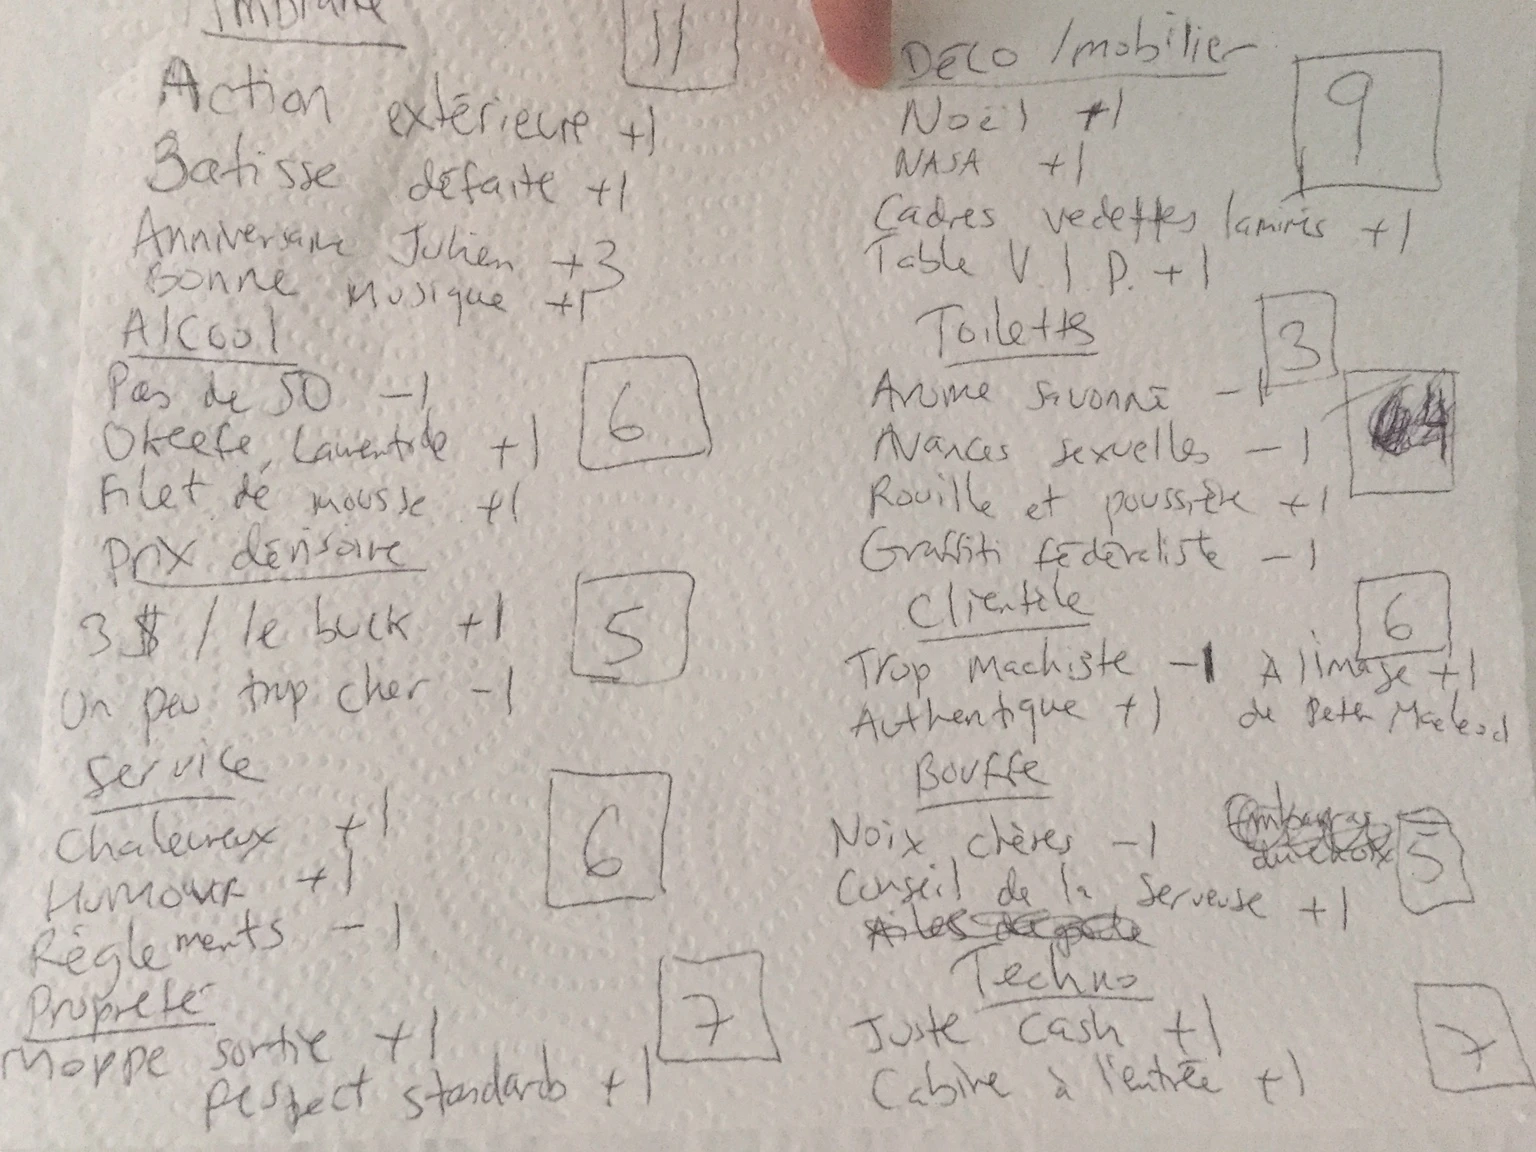 11
Action extérieure +1
Batisse défaite +1
Anniversaire Julien +3
Bonne musique +1
Alcool
6
Pas de 50 -1
Okeefe, Laurentide +1
Filet de mousse +1
Prix dérisoire
5
3$ / le buck +1
Un peu trop cher -1
Service
6
Chaleureux +1
Humour +1
Règlements -1
Propreté
7
Moppe sortie +1
Respect standards +1
Déco / mobilier
9
Noël +1
NASA +1
Cadres vedettes laminés +1
Table V.I.P. +1
Toilettes
3
Arôme savonné -1
Avances sexuelles -1
Rouille et poussière +1
Graffiti fédéraliste -1
Clientèle
6
Trop machiste -1 À l'image +1
Authentique +1 de Peter Macleod
Bouffe
5
Noix chères -1
Conseil de la serveuse +1
Techno
7
Juste cash +1
Cabine à l'entrée +1